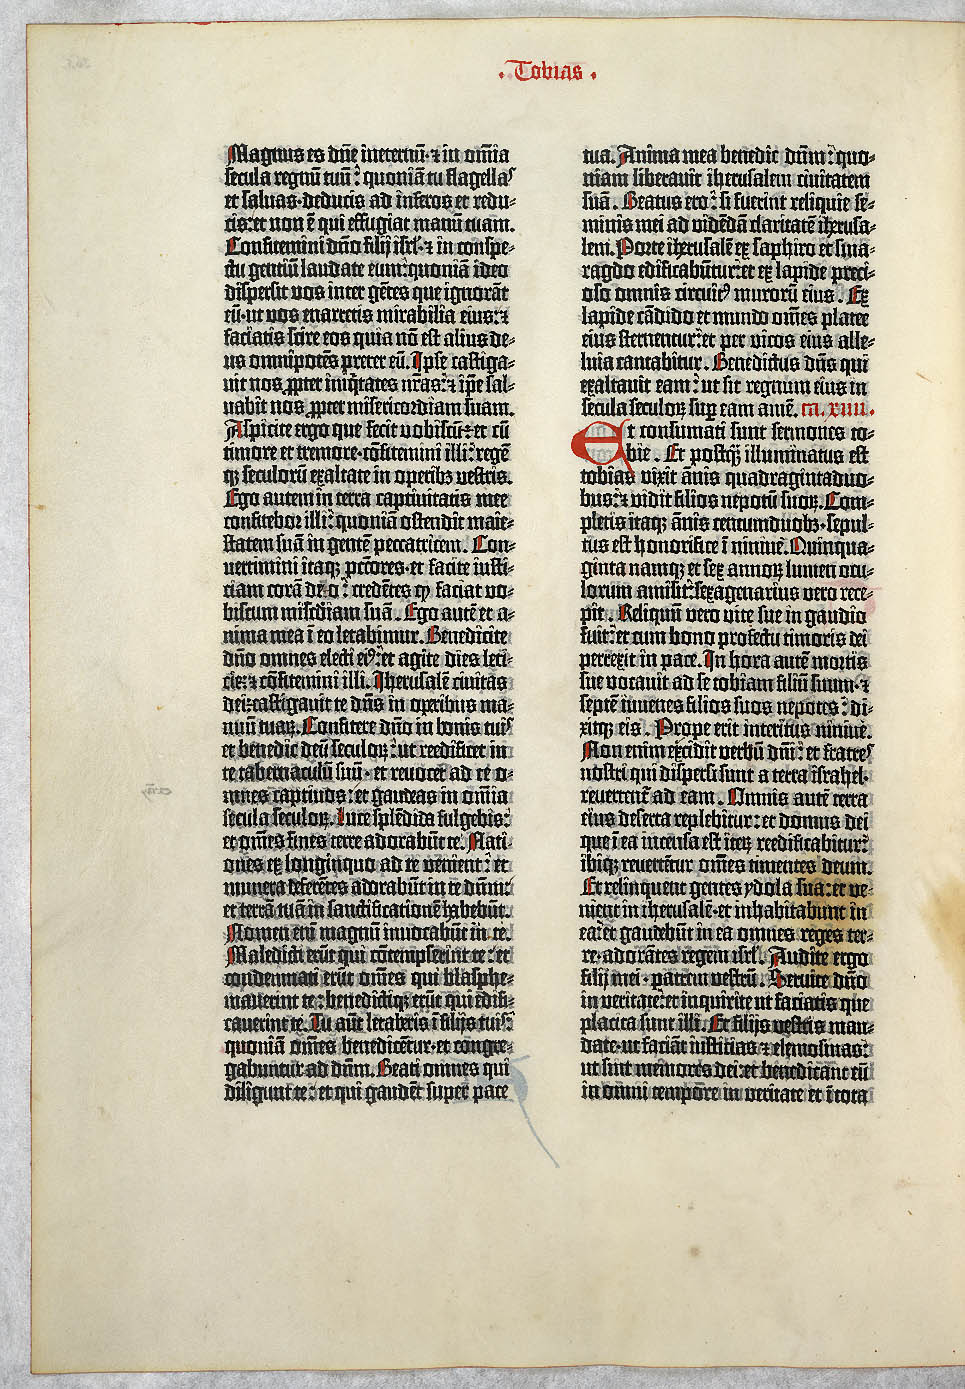 Tobias
Magnus es dñe ineternũ·⁊ in om̃ia
secula regnũ tuũ: quoniã tu flagellaˢ
et saluas·deducis ad inferos et redu-
cis: et non ẽ qui effugiat manũ tuam.
Confitemini dño filij isrl·⁊ in conspe-
ctu gentiũ laudate eum: quoniã ideo
dispersit vos inter gẽtes que ignorãt
eũ·ut vos enarretis mirabilia eius: ⁊
faciatis scire eos quia nõ est alius de-
us omnipotẽs preter eũ. Ipse castiga-
uit nos ꝓpter iniq̃tates nr̃as: ⁊ ip̃e sal-
uabit nos ꝓpter misericordiam suam.
Aspicite ergo que fecit vobiscũ: et cũ
timore et tremore·cõfitemini illi: regẽ
qꝫ seculorũ exaltate in operibꝫ vestris.
Ego autem in terra captiuitatis mee
confitebor illi: quoniã ostendit maie-
statem suã in gentẽ peccatricem. Con-
uertimini itaqꝫ pctõres·et facite iusti-
ciam corã deo: credẽtes ꝙ faciat vo-
biscum misc̃diam suã. Ego autẽ et a-
nima mea ĩ eo letabimur. Benedicite
dño omnes electi eiꝰ: et agite dies leti-
cie: ⁊ cõfitemini illi. Iherusalẽ ciuitas
dei: castigauit te dñs in operibus ma-
nuũ tuaꝝ. Confitere dño in bonis tuiˢ
et benedic deũ seculoꝝ: ut reedificet in
te tabernaculũ suũ·et reuocet ad te o-
mnes captiuos: et gaudeas in om̃ia
secula seculoꝝ. Luce splẽdida fulgebis:
et om̃es fines terre adorabũt te. Nati-
ones ex longinquo ad te veniẽt: et
munera deferẽtes adorabũt in te dñm:
et terrã tuã in sanctificationẽ habebũt.
Nomen em̃ magnũ inuocabũt in te.
Maledicti erũt qui cõtempserint te: et
condemnati erũt om̃es qui blasphe-
mauerint te: benedictiqꝫ erũt qui edifi-
cauerint te. Tu aũt letaberis ĩ filijs tuiˢ:
quoniã om̃es benedicẽtur·et congre-
gabuntur ad dñm. Beati omnes qui
diligunt te: et qui gaudẽt super pace
tua. Anima mea benedic dñm: quo-
niam liberauit iherusalem ciuitatem
suã. Beatus ero: si fuerint reliquie se-
minis mei ad vidẽdã claritatẽ iherusa-
lem. Porte iherusalẽ ex saphiro et sma-
ragdo edificabũtur: et ex lapide preci-
oso omnis circuitꝰ murorũ eius. Ex
lapide cãdido et mundo om̃es platee
eius sternentur: et per vicos eius alle-
luia cantabitur. Benedictus dñs qui
exaltauit eam: ut sit regnum eius in
secula seculoꝝ suꝑ eam amẽ. ca. xiiii.
Et consumati sunt sermones to-
bie. Et postq̃ illuminatus est
tobias vixit ãnis quadragintaduo-
bus: ⁊ vidit filios nepotũ suoꝝ. Com-
pletis itaqꝫ ãnis centumduobꝫ·sepul-
tus est honorifice ĩ niniue. Quinqua-
ginta namqꝫ et sex annoꝝ lumen ocu-
lorum amisit: sexagenarius vero rece-
pit. Reliquum vero vite sue in gaudio
fuit: et cum bono profectu timoris dei
perrexit in pace. In hora autẽ mortis
sue vocauit ad se tobiam filiũ suum·⁊
septẽ iuuenes filios suos nepotes: di-
xitqꝫ eis. Prope erit interitus niniue.
Non enim excidit verbũ dñi: et fratreˢ
nostri qui dispersi sunt a terra israhel·
reuertent̃ ad eam. Omnis autẽ terra
eius deserta replebitur: et domus dei
que ĩ ea incensa est iteꝝ reedificabitur:
ibiqꝫ reuertẽtur om̃es timentes deum.
Et relinquent gentes ydola sua: et ve-
nient in iherusalẽ·et inhabitabunt in
ea: et gaudebũt in ea omnes reges ter-
re·adorãtes regem isrl. Audite ergo
filij mei·patrem vestrũ. Seruite dño
in veritate: et inquirite ut faciatis que
placita sunt illi. Et filijs vestris man-
date·ut faciãt iusticias ⁊ elemosinas:
ut sint memores dei: et benedicant eũ
in omni tempore in veritate et ĩ tota